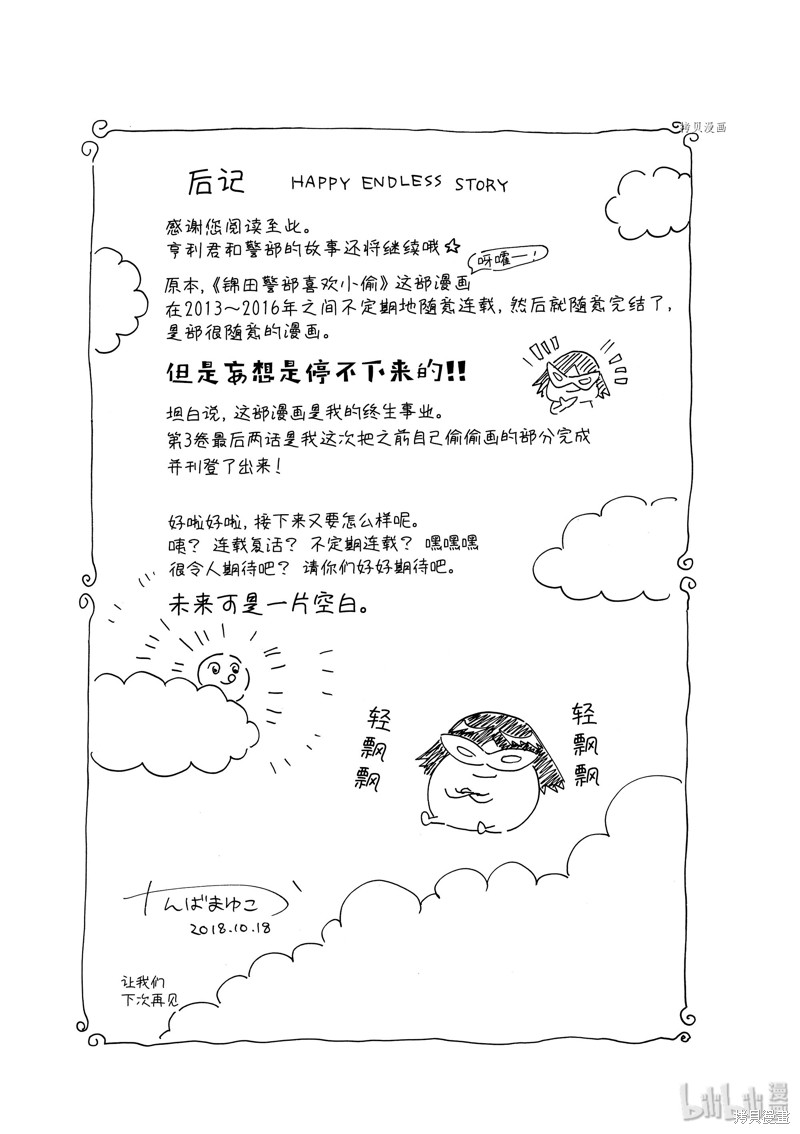 拷贝漫画
后记 HAPPY ENDLESS STORY
感谢您阅读至此。
亨利君和警部的故事还将继续哦☆
呀嚯一!
原本,《锦田警部喜欢小偷》这部漫画
在2013~2016年之间不定期地随意连载,然后就随意完结了,
是部很随意的漫画。
但是妄想是停不下来的!!
坦白说,这部漫画是我的终生事业。
第3卷最后两话是我这次把之前自己偷偷画的部分完成
并刊登了出来!
好啦好啦,接下来又要怎么样呢。
咦? 连载复活? 不定期连载? 嘿嘿嘿
很令人期待吧? 请你们好好期待吧。
未来可是一片空白。
轻飘飘
轻飘飘
たんばまゆこ
2018.10.18
让我们
下次再见
bilibili漫画
拷贝漫畫